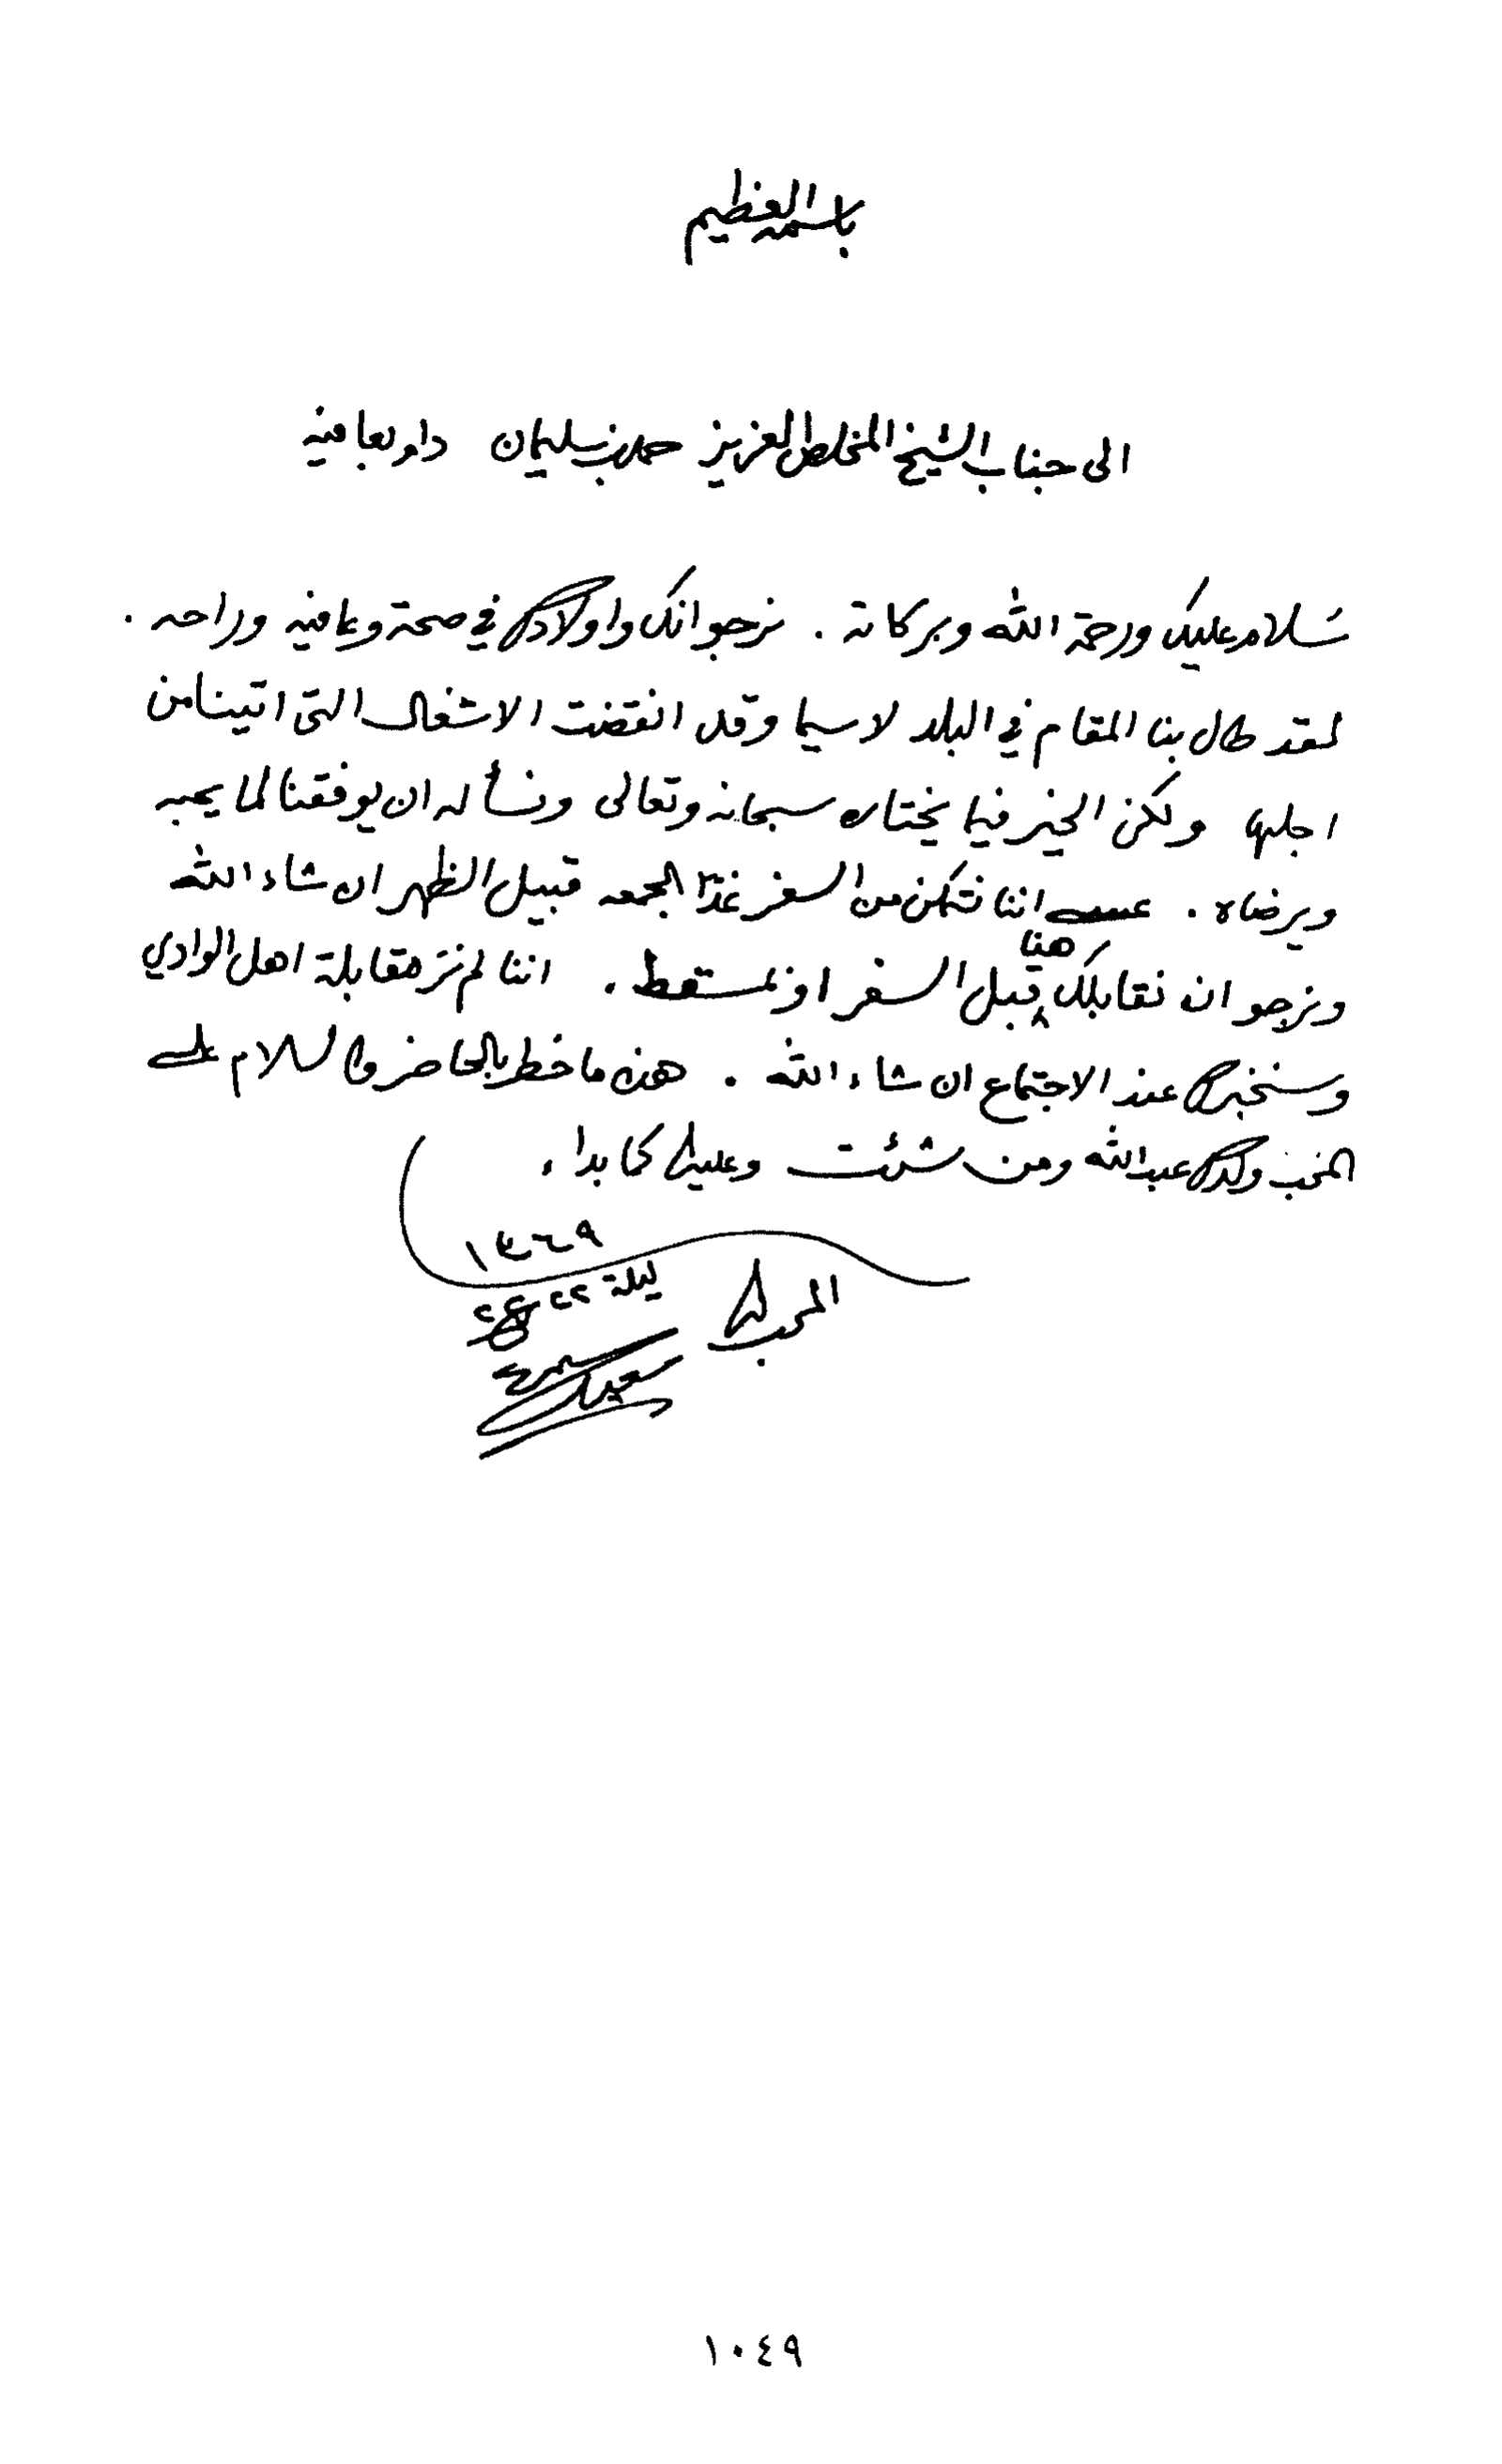 باسمه العظيم
الى جناب الشيخ المخلص العزيز حمد بن سليمان دام بعافيه
سلام عليك ورحمة الله وبركاته . نرجو انك واولادكم في صحة وعافيه وراحه .
لقد طال بنا المقام في البلد لا سيما وقد انقضت الاشغال التي اتينا من
اجلها ولكن الخير فيما يختاره سبحانه وتعالى ونسأله ان يوفقنا لما يحبه
ويرضاه . عسى اننا نتمكن من السفر غدًا الجمعه قبيل الظهر ان شاء الله
ونرجو ان نقابلك هنا قبل السفر او بمسقط . اننا لم نر مقابلة اهل الوادي
وسنخبركم عند الاجتماع ان شاء الله . هذه ما خطر بالحاضر والسلام على
المحب ولدكم عبدالله ومن شئت وعليكم كما بدا .
١٣٦٩
ليلة ٢٢
المحب لكم
سعيد
١٠٤٩